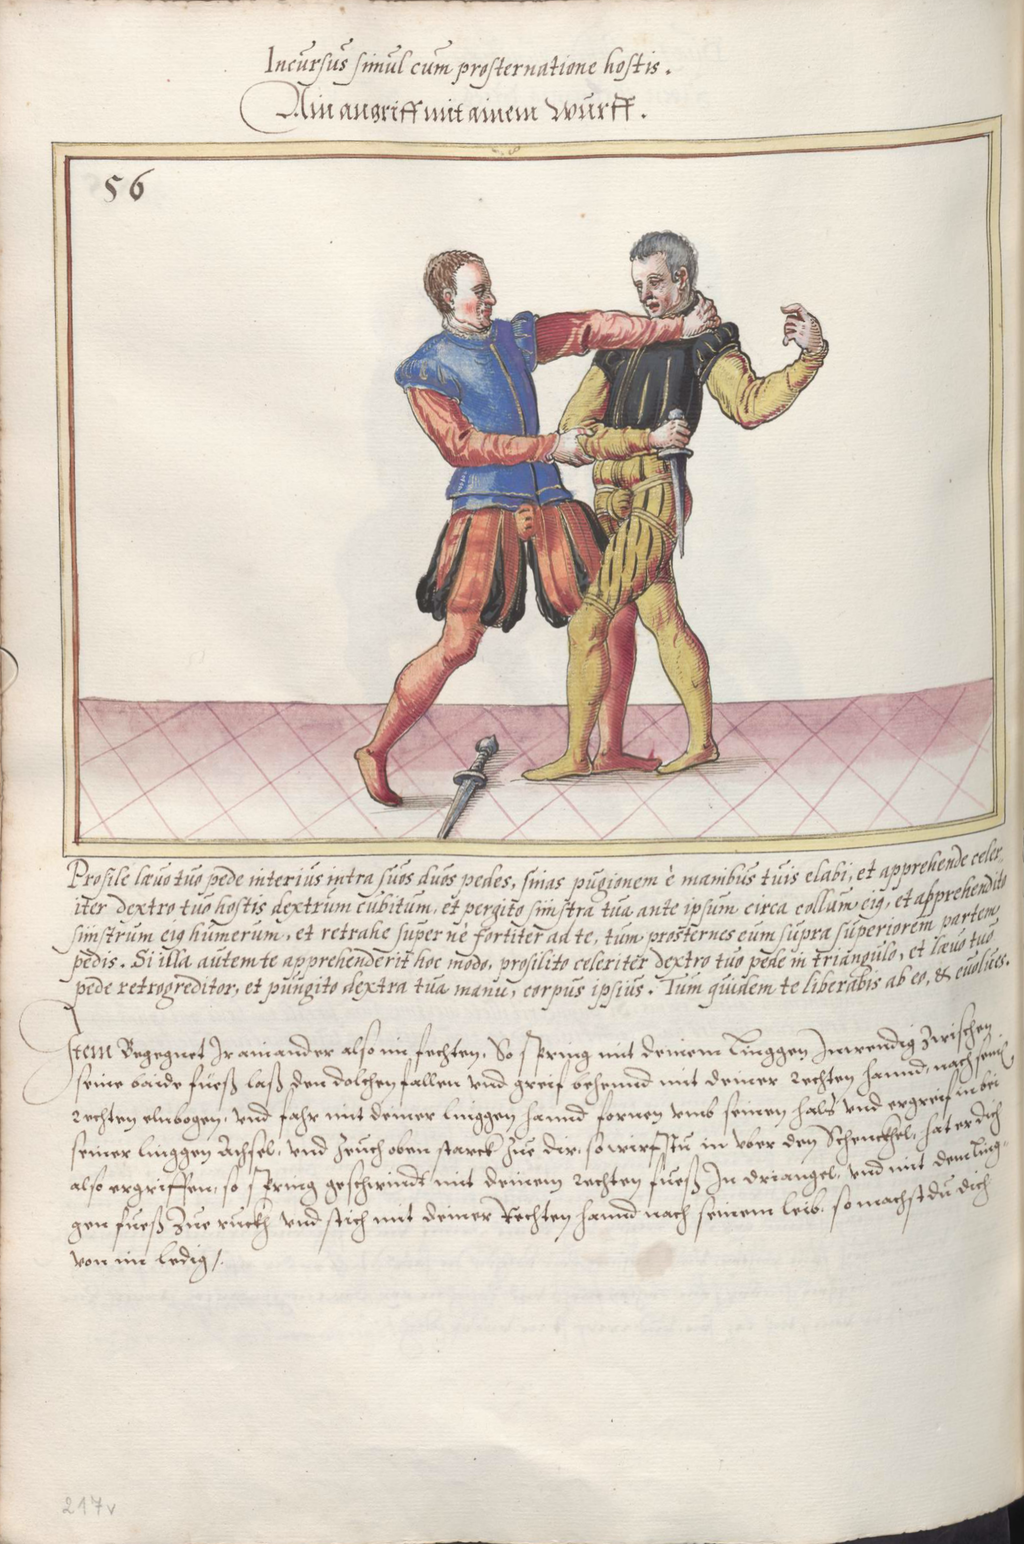 Incursus simul cum prosternatione hostis.
Ain angriff mit ainem Wurff.
56
Prosile lævo tuo pede interius intra suos duos pedes, sinas pugionem è manibus tuis elabi, et apprehende celer
iter dextro tuo hostis dextrum cubitum, et pergito sinistra tua ante ipsum circa collum eiq, et apprehendito
sinistrum eiq humerum, et retrahe superne fortiter ad te, tum prosternes eum supra superiorem partem
pedis. Si illa autem te apprehenderit hoc modo, prosilito celeriter dextro tuo pede in triangulo, et lævo tuo
pede retrogreditor, et pungito dextra tua manu, corpus ipsius. Tum quidem te liberabis ab eo, & evolves.
Item Begegnet Ir ainander also im fechten, So spring mit deinem linggen Inwendig zwischen
seine baide fuess lass den dolchen fallen vnd greif behennd mit deiner rechten hannd, nach seim
rechten elnbogen, vnd fahr mit deiner linggen hannd fornen vmb seinen hals vnd ergreif in bei
seiner linggen Achsel, vnd zeuch oben starck zue dir, so wirfstu in vber den Schenckhel, hat er dich
also ergriffen, so spring geschwindt mit deinem rechten fuess In driangel, vnd mit dem ling-
gen fuess zue ruckh vnd stich mit deiner Rechten hannd nach seinem leib, so machst du dich
von im ledig /.
217v